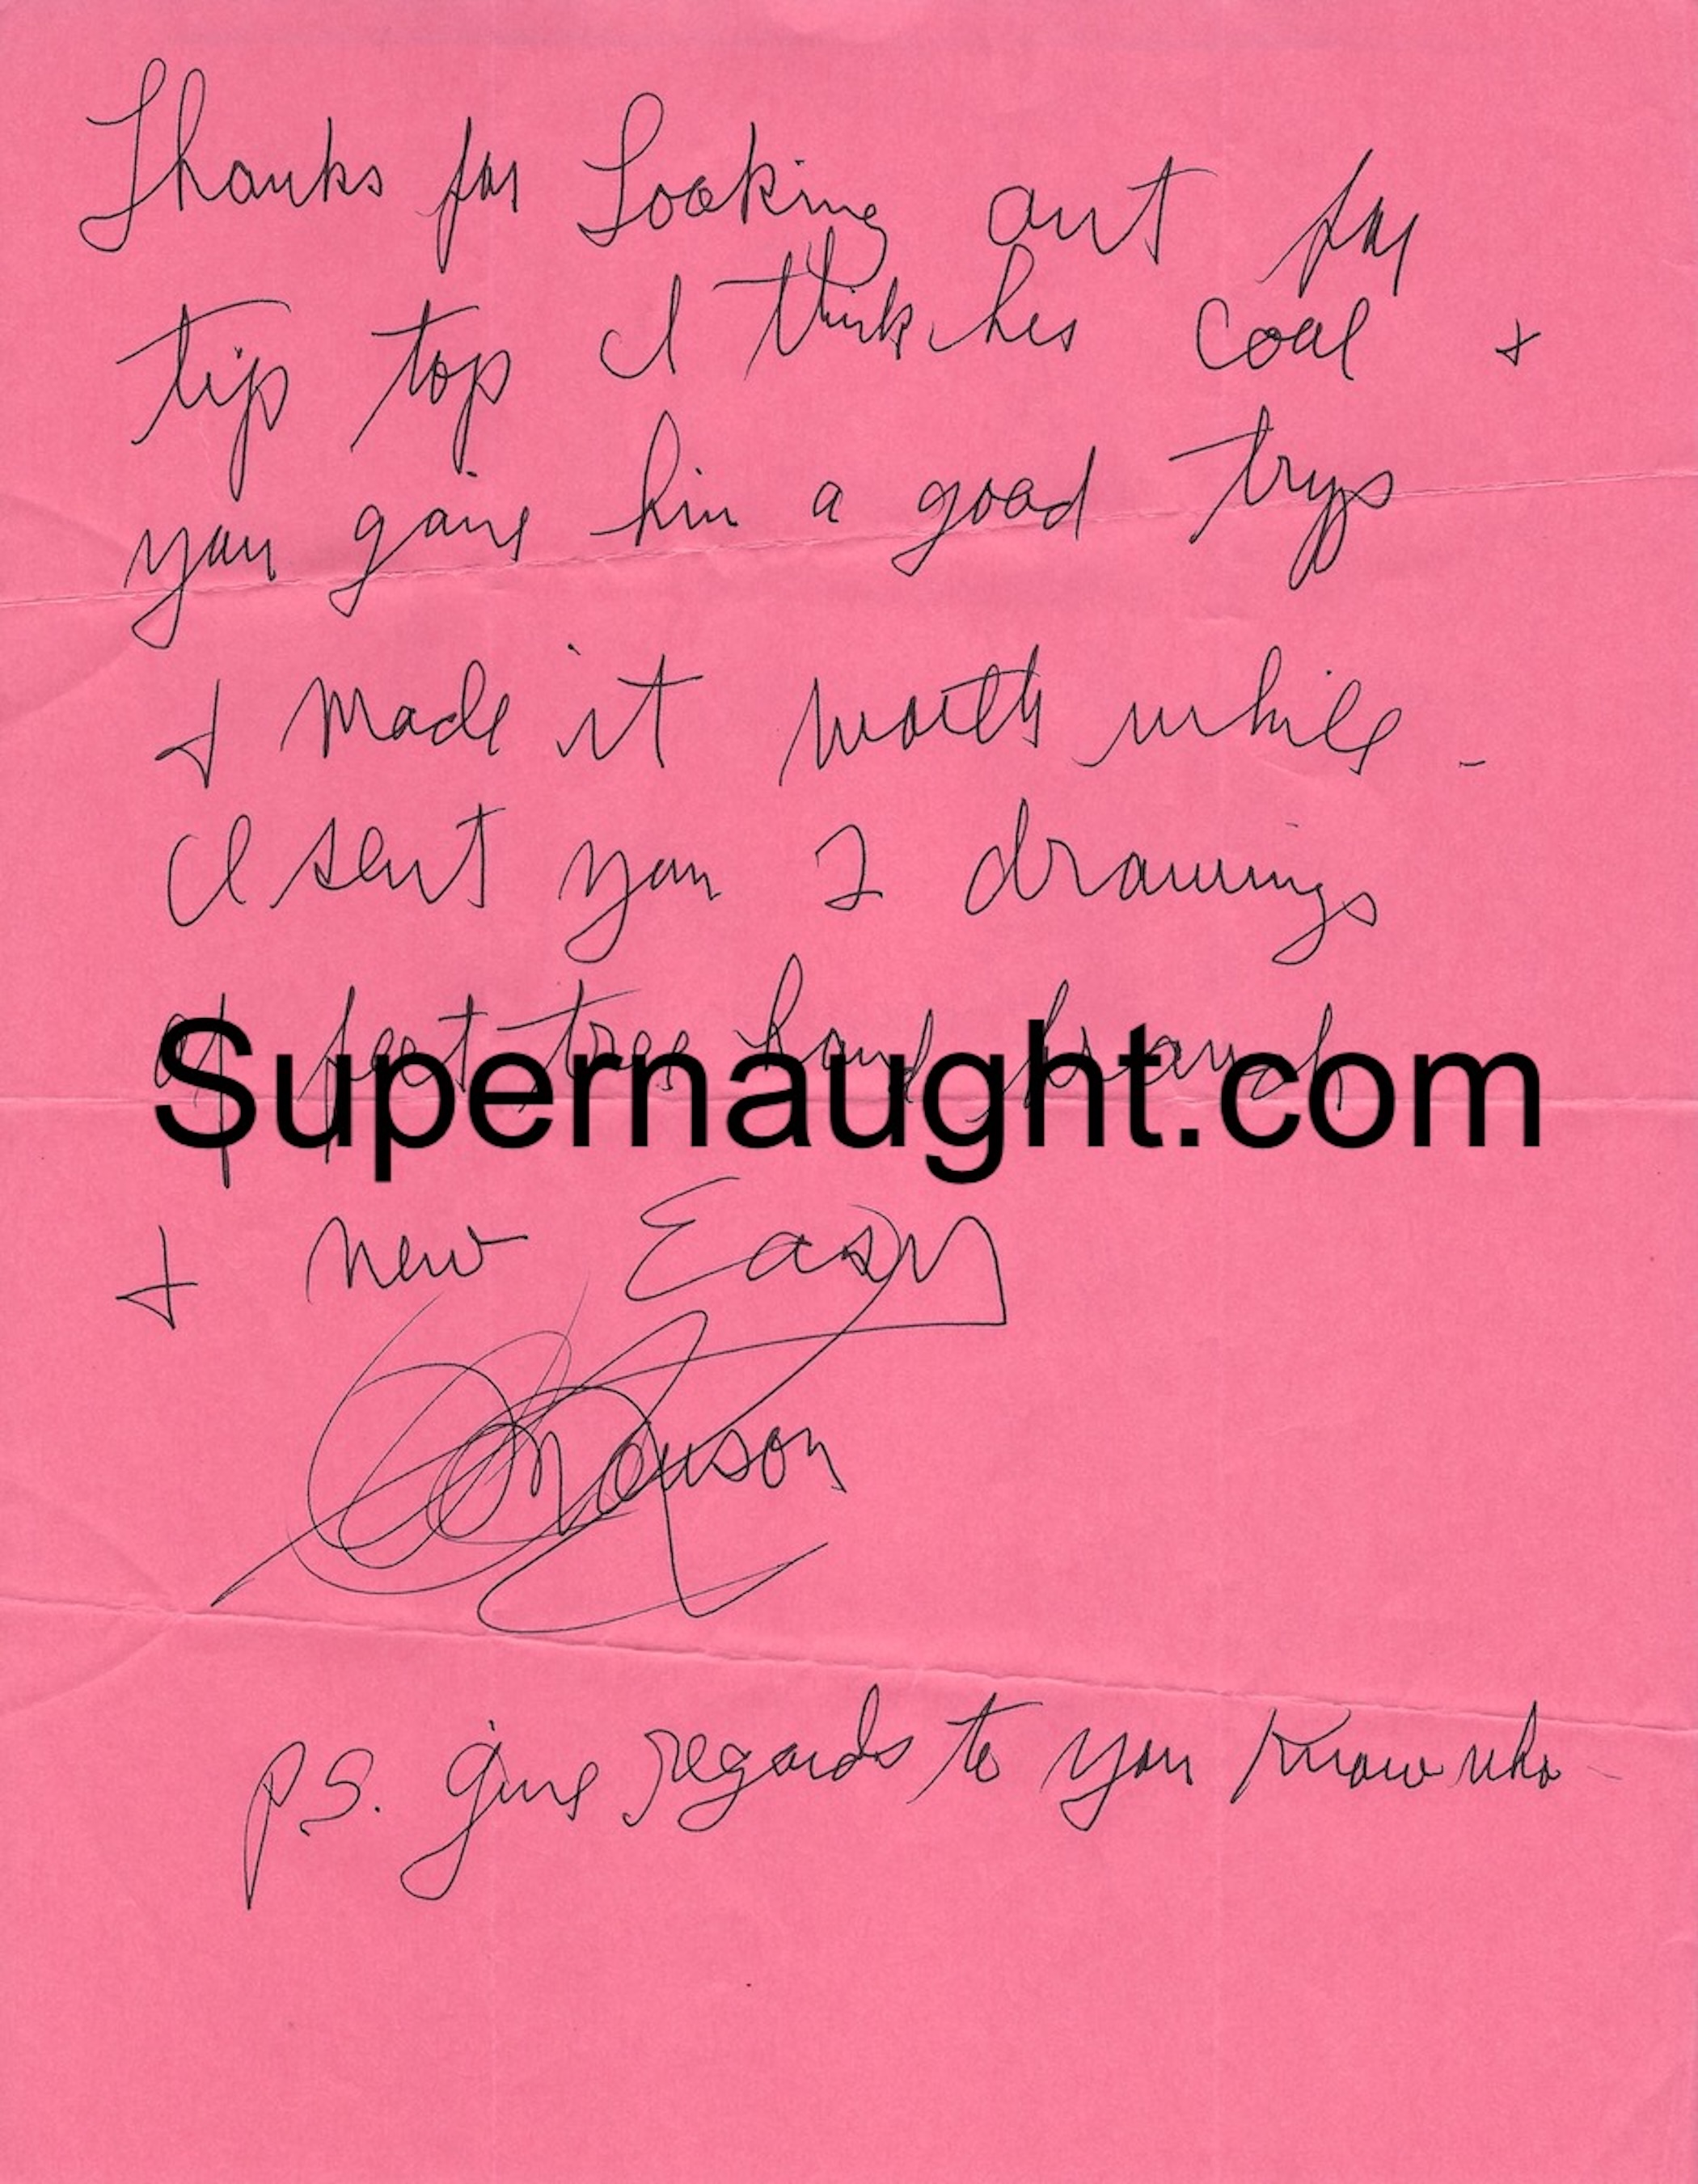 Thanks for Looking out for
tip top I think hes cool +
you gave him a good tryp
+ made it worth while -
I sent you 2 drawings
of feet tree hand branch
Supernaught.com
+ new Easy
Manson
PS. give regards to you Know who -